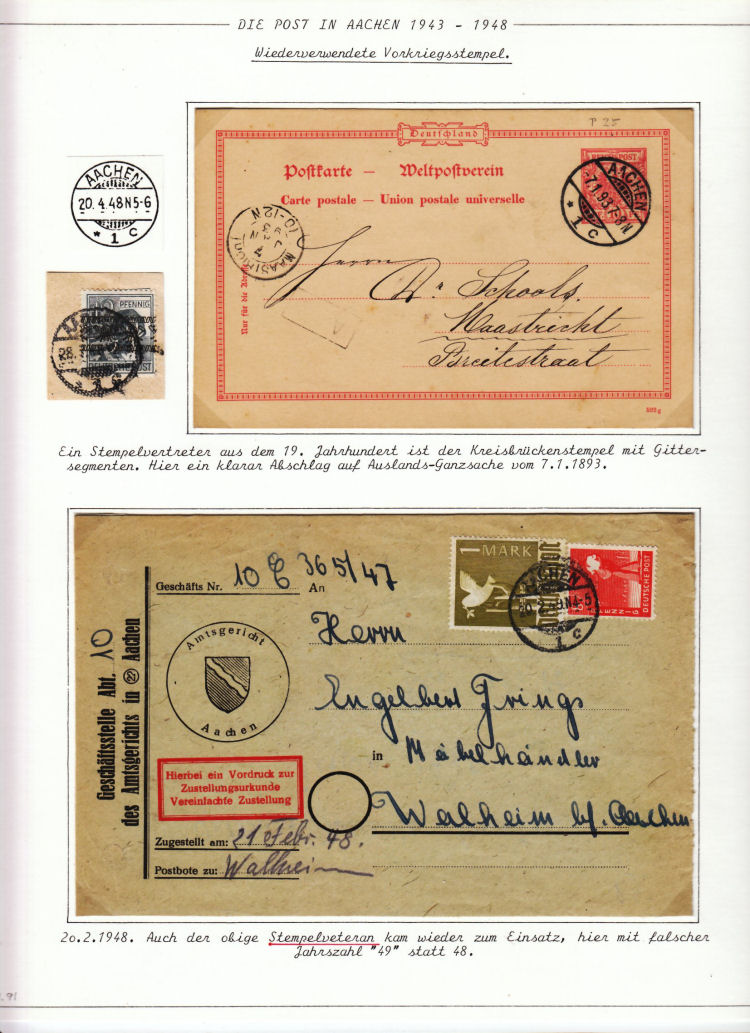 DIE POST IN AACHEN 1943 - 1948
Wiederverwendete Vorkriegsstempel.
AACHEN
20. 4. 48 N5-6
* 1 c
PFENNIG
28.
* 1 c
P 25
Deutschland
Postkarte — Weltpostverein
Carte postale — Union postale universelle
AACHEN
7.1.93.7-8N
* 1 c
10-12N
MAASTRICHT
Nur für die Adresse
Herrn
Dr Schools.
Maastricht
Breitestraat
592g
Ein Stempelvertreter aus dem 19. Jahrhundert ist der Kreisbrückenstempel mit Gitter-
segmenten. Hier ein klarar Abschlag auf Auslands-Ganzsache vom 7.1.1893.
1 MARK
DEUTSCHE POST
PFENNIG
AACHEN
20.2.49.N4-5
* 1 c
Geschäftsstelle Abt. 10
des Amtsgerichts in (22) Aachen
Geschäfts Nr. 10 C 365/47
An
Amtsgericht
Aachen
Herrn
Engelbert Frings
in Möbelhändler
Walheim b/. Aachen
Hierbei ein Vordruck zur
Zustellungsurkunde
Vereinfachte Zustellung
Zugestellt am: 21 Febr. 48.
Postbote zu: Walheim
20.2.1948. Auch der obige Stempelveteran kam wieder zum Einsatz, hier mit falscher
Jahrszahl "49" statt 48.